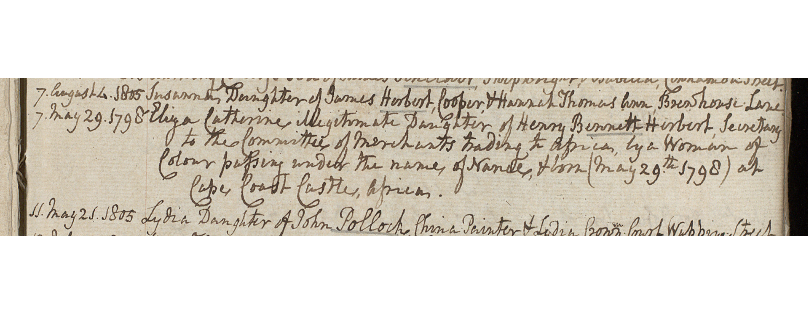 Shipwright & Isabella, Cinnamon Street.
7. August 4. 1805 Susanna, Daughter of James Herbert, Cooper, & Hannah Thomas Ann, Brewhouse Lane
7. May 29. 1798 Eliza Catherine, illegitimate Daughter of Henry Bennett Herbert, Secretary
to the Committee of Merchants trading to Africa, by a Woman of
Colour passing under the name of Nance, & born (May 29th 1798) at
Cape Coast Castle, Africa.
11. May 21. 1805 Lydia Daughter of John Pollock, China Painter & Lydia Crown Court Wapping Street